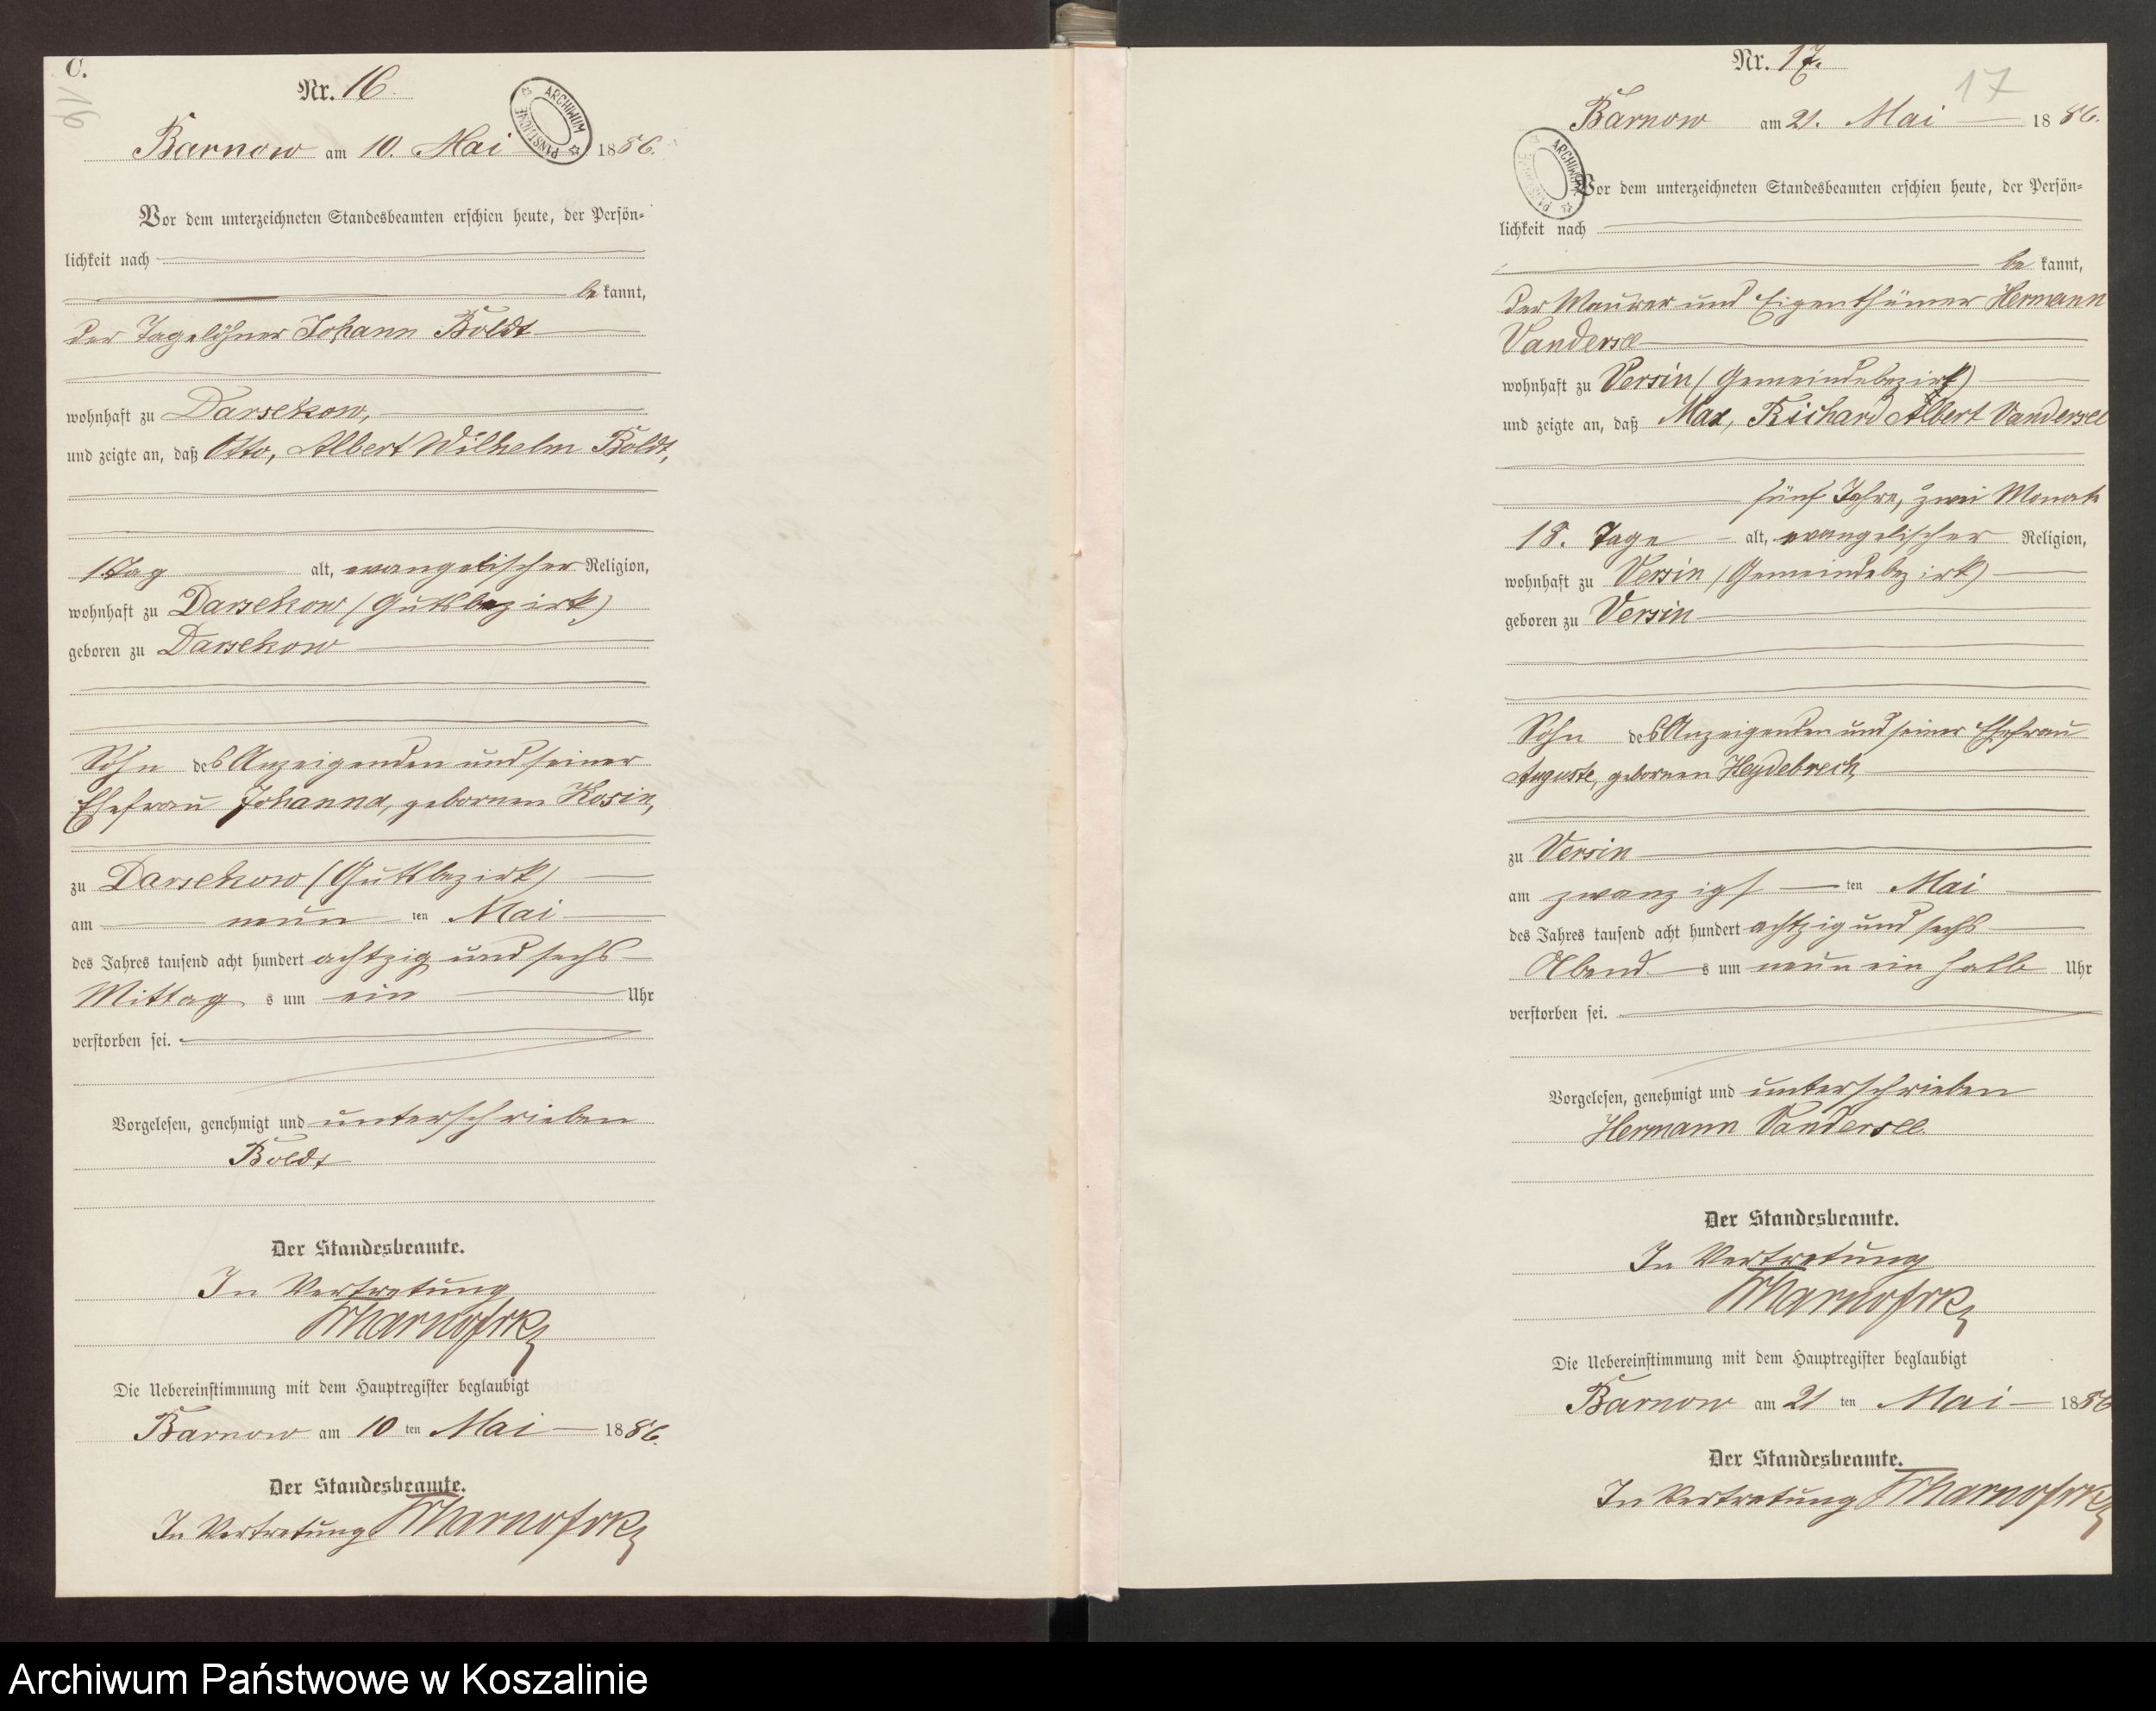 C.
16
Nr. 16.
ARCHIWUM PAŃSTWOWE
Barnow am 10. Mai 1886.
Vor dem unterzeichneten Standesbeamten erschien heute, der Persön-
lichkeit nach
bekannt,
der Tagelöhner Johann Boldt
wohnhaft zu Darsekow,
und zeigte an, daß Otto, Albert Wilhelm Boldt,
1 Tag alt, evangelischer Religion,
wohnhaft zu Darsekow (Gutsbezirk)
geboren zu Darsekow
Sohn des Anzeigenden und seiner
Ehefrau Johanna, gebornen Kosin,
zu Darsekow (Gutsbezirk)
am neun ten Mai
des Jahres tausend acht hundert achtzig und sechs
Mittag s um ein Uhr
verstorben sei.
Vorgelesen, genehmigt und unterschrieben
Boldt
Der Standesbeamte.
In Vertretung
Die Uebereinstimmung mit dem Hauptregister beglaubigt
Barnow am 10 ten Mai 1886.
Der Standesbeamte.
In Vertretung
Nr. 17.
17
Barnow am 21. Mai 1886.
ARCHIWUM PAŃSTWOWE
Vor dem unterzeichneten Standesbeamten erschien heute, der Persön-
lichkeit nach
bekannt,
der Maurer und Eigenthümer Hermann
Vandersee
wohnhaft zu Versin (Gemeindebezirk)
und zeigte an, daß Max, Richard Albert Vandersee
fünf Jahre, zwei Monate
18. Tage alt, evangelischer Religion,
wohnhaft zu Versin (Gemeindebezirk)
geboren zu Versin
Sohn des Anzeigenden und seiner Ehefrau
Auguste, gebornen Heydebreck,
zu Versin
am zwanzigs ten Mai
des Jahres tausend acht hundert achtzig und sechs
Abend s um neun ein halb Uhr
verstorben sei.
Vorgelesen, genehmigt und unterschrieben
Hermann Vandersee.
Der Standesbeamte.
In Vertretung
Die Uebereinstimmung mit dem Hauptregister beglaubigt
Barnow am 21 ten Mai 1886
Der Standesbeamte.
In Vertretung
Archiwum Państwowe w Koszalinie